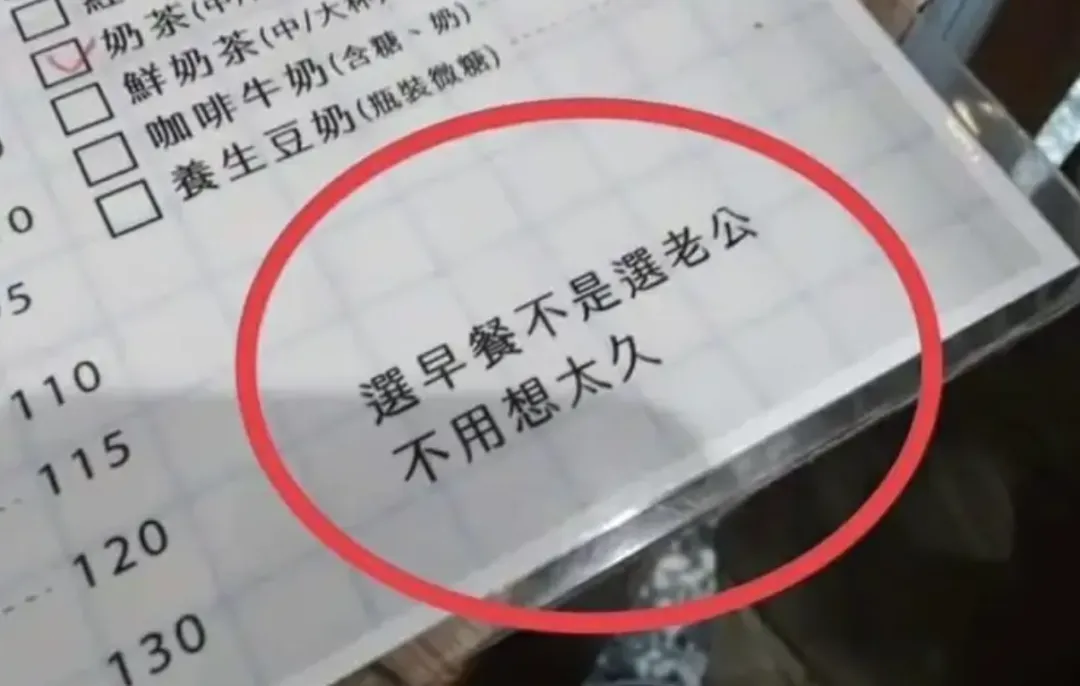 奶茶(中/
鮮奶茶(中/大杯
咖啡牛奶(含糖、奶)
養生豆奶(瓶裝微糖)
選早餐不是選老公
不用想太久
110
115
120
130